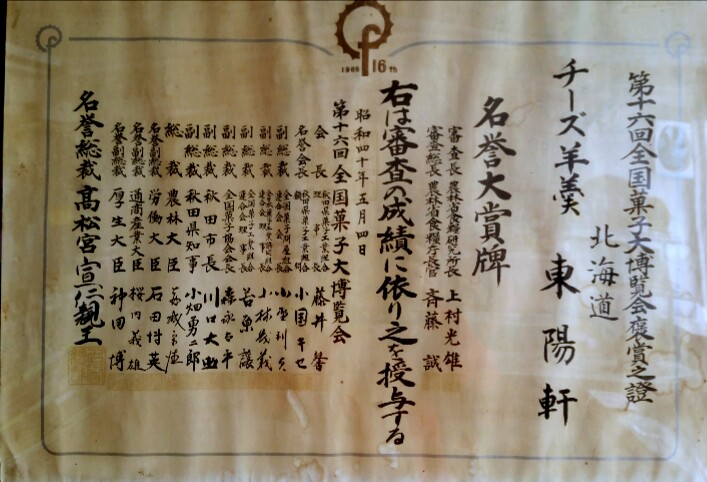 1965 16th
第十六回全国菓子大博覧会褒賞之證
北海道
チーズ羊羹 東陽軒
名誉大賞牌
審査長 農林省食糧研究所長 上村光雄
審査総長 農林省食糧庁長官 斉藤誠
右は審査の成績に依り之を授与する
昭和四十年五月四日
第十六回全国菓子大博覧会
会長 秋田県菓子工業組合理事長 藤井
名誉会長
副総裁
副総裁
副総裁
副総裁 全国菓子協会会長 森永太平
副総裁 秋田市長 川口大助
副総裁 秋田県知事 小畑勇二郎
総裁 農林大臣
名誉副総裁 労働大臣 石田博英
名誉副総裁 通商産業大臣 桜内義雄
名誉副総裁 厚生大臣 神田博
名誉総裁 高松宮宣仁親王